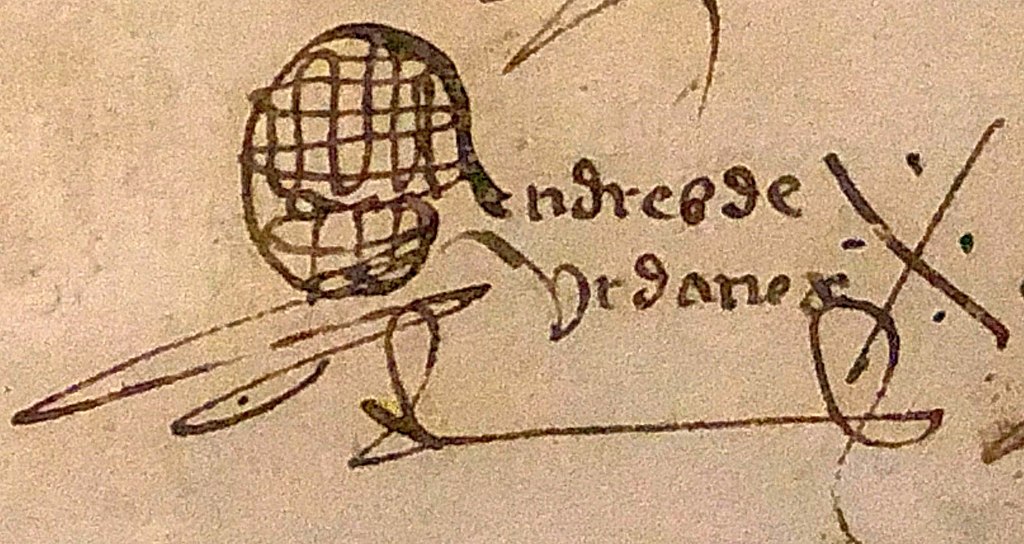 andres de
vrdaneta